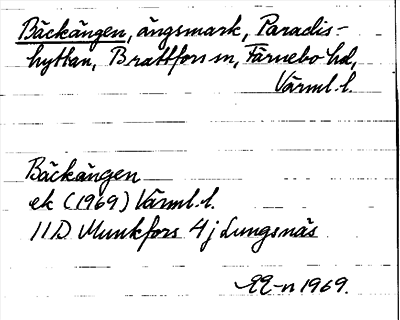 Bäckängen, ängsmark, Paradis-
hyttan, Brattfors sn, Färnebo hd,
Värml. l.
Bäckängen
ek (1969) Värml. l.
11D Munkfors 4j Lungsnäs
1969.